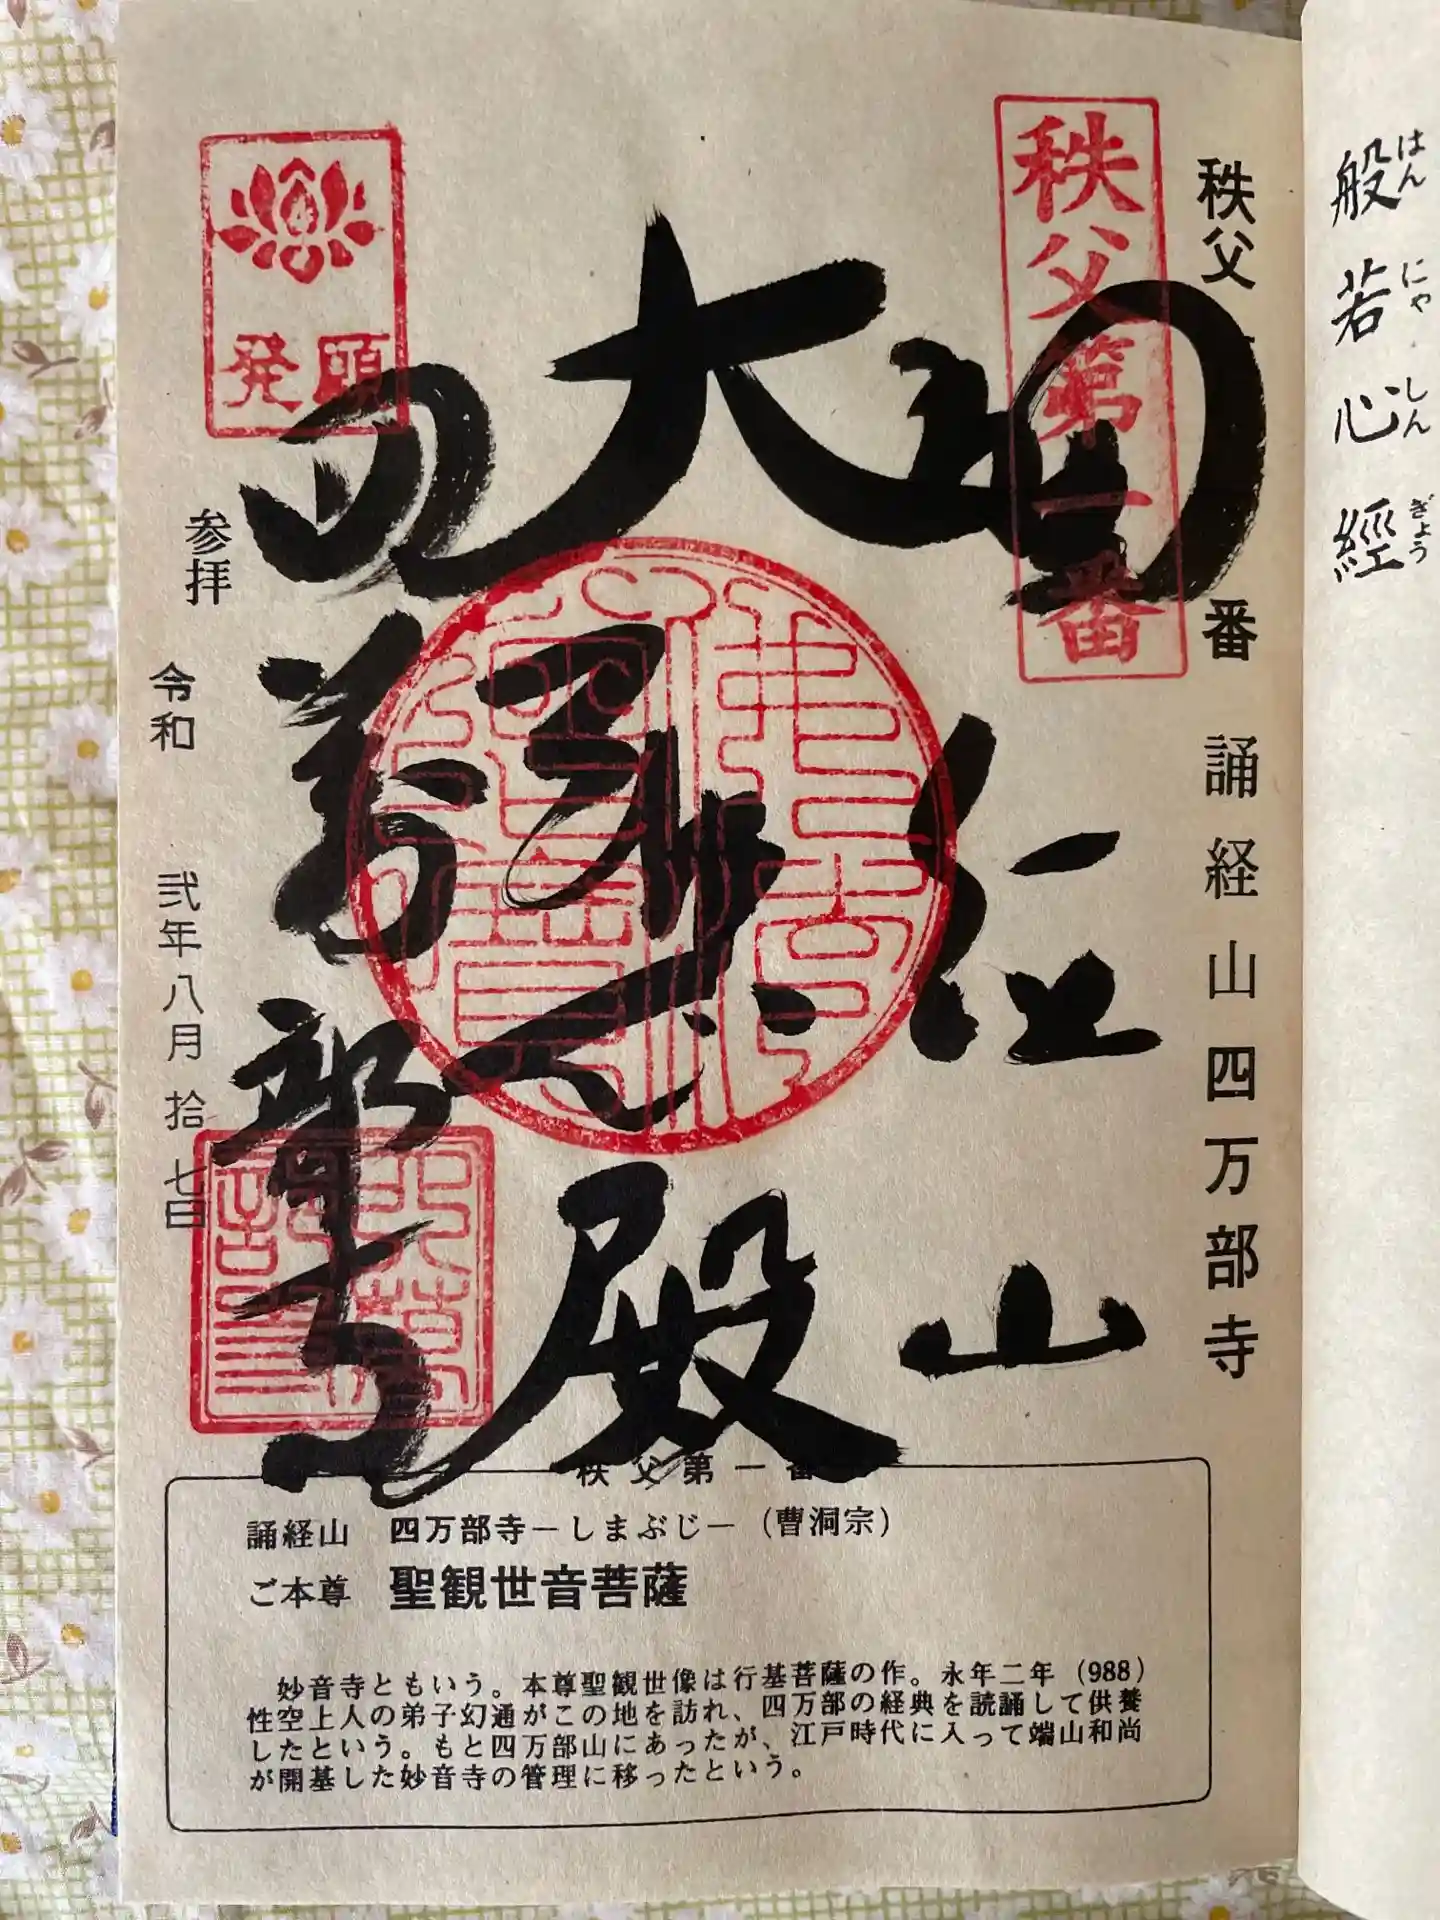 般若心經
はんにゃしんぎょう
秩父
番
誦経山四万部寺
秩父第一番
大
殿
山
四
萬
部
寺
発願
参拝
令和
弐年八月拾七日
秩父第一番
誦経山 四万部寺－しまぶじ－（曹洞宗）
ご本尊 聖観世音菩薩
妙音寺ともいう。本尊聖観世像は行基菩薩の作。永年二年（988）
性空上人の弟子幻通がこの地を訪れ、四万部の経典を読誦して供養
したという。もと四万部山にあったが、江戸時代に入って端山和尚
が開基した妙音寺の管理に移ったという。